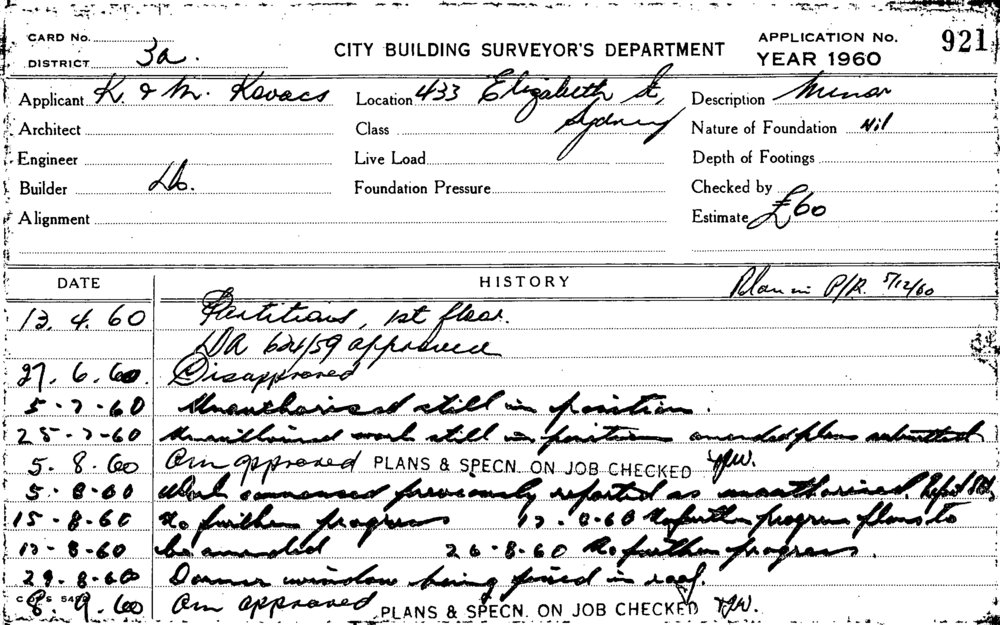 CARD No.
DISTRICT 3a.
CITY BUILDING SURVEYOR'S DEPARTMENT
APPLICATION No. 921
YEAR 1960
Applicant K. & M. Kovacs
Location 433 Elizabeth St, Sydney
Description Minor
Architect
Class
Nature of Foundation Nil
Engineer
Live Load
Depth of Footings
Builder
Foundation Pressure
Checked by
Alignment
Estimate £60
DATE HISTORY Plan in P/R. 5/12/60
13. 4. 60 Partitions, 1st floor.
DA 624/59 approved
27. 6. 60. Disapproved
5-7-60 Unauthorised still in position.
25-7-60 Unauthorised work still in position amended plans submitted
5. 8. 60 Am approved PLANS & SPECN. ON JOB CHECKED
5-8-60 Work commenced previously reported as unauthorised.
15-8-60 No further progress 17-8-60 No further progress plans to
17-8-60 be amended 26-8-60 No further progress.
29-8-60 Dormer window being fixed in roof.
8. 9. 60 Am approved PLANS & SPECN. ON JOB CHECKED